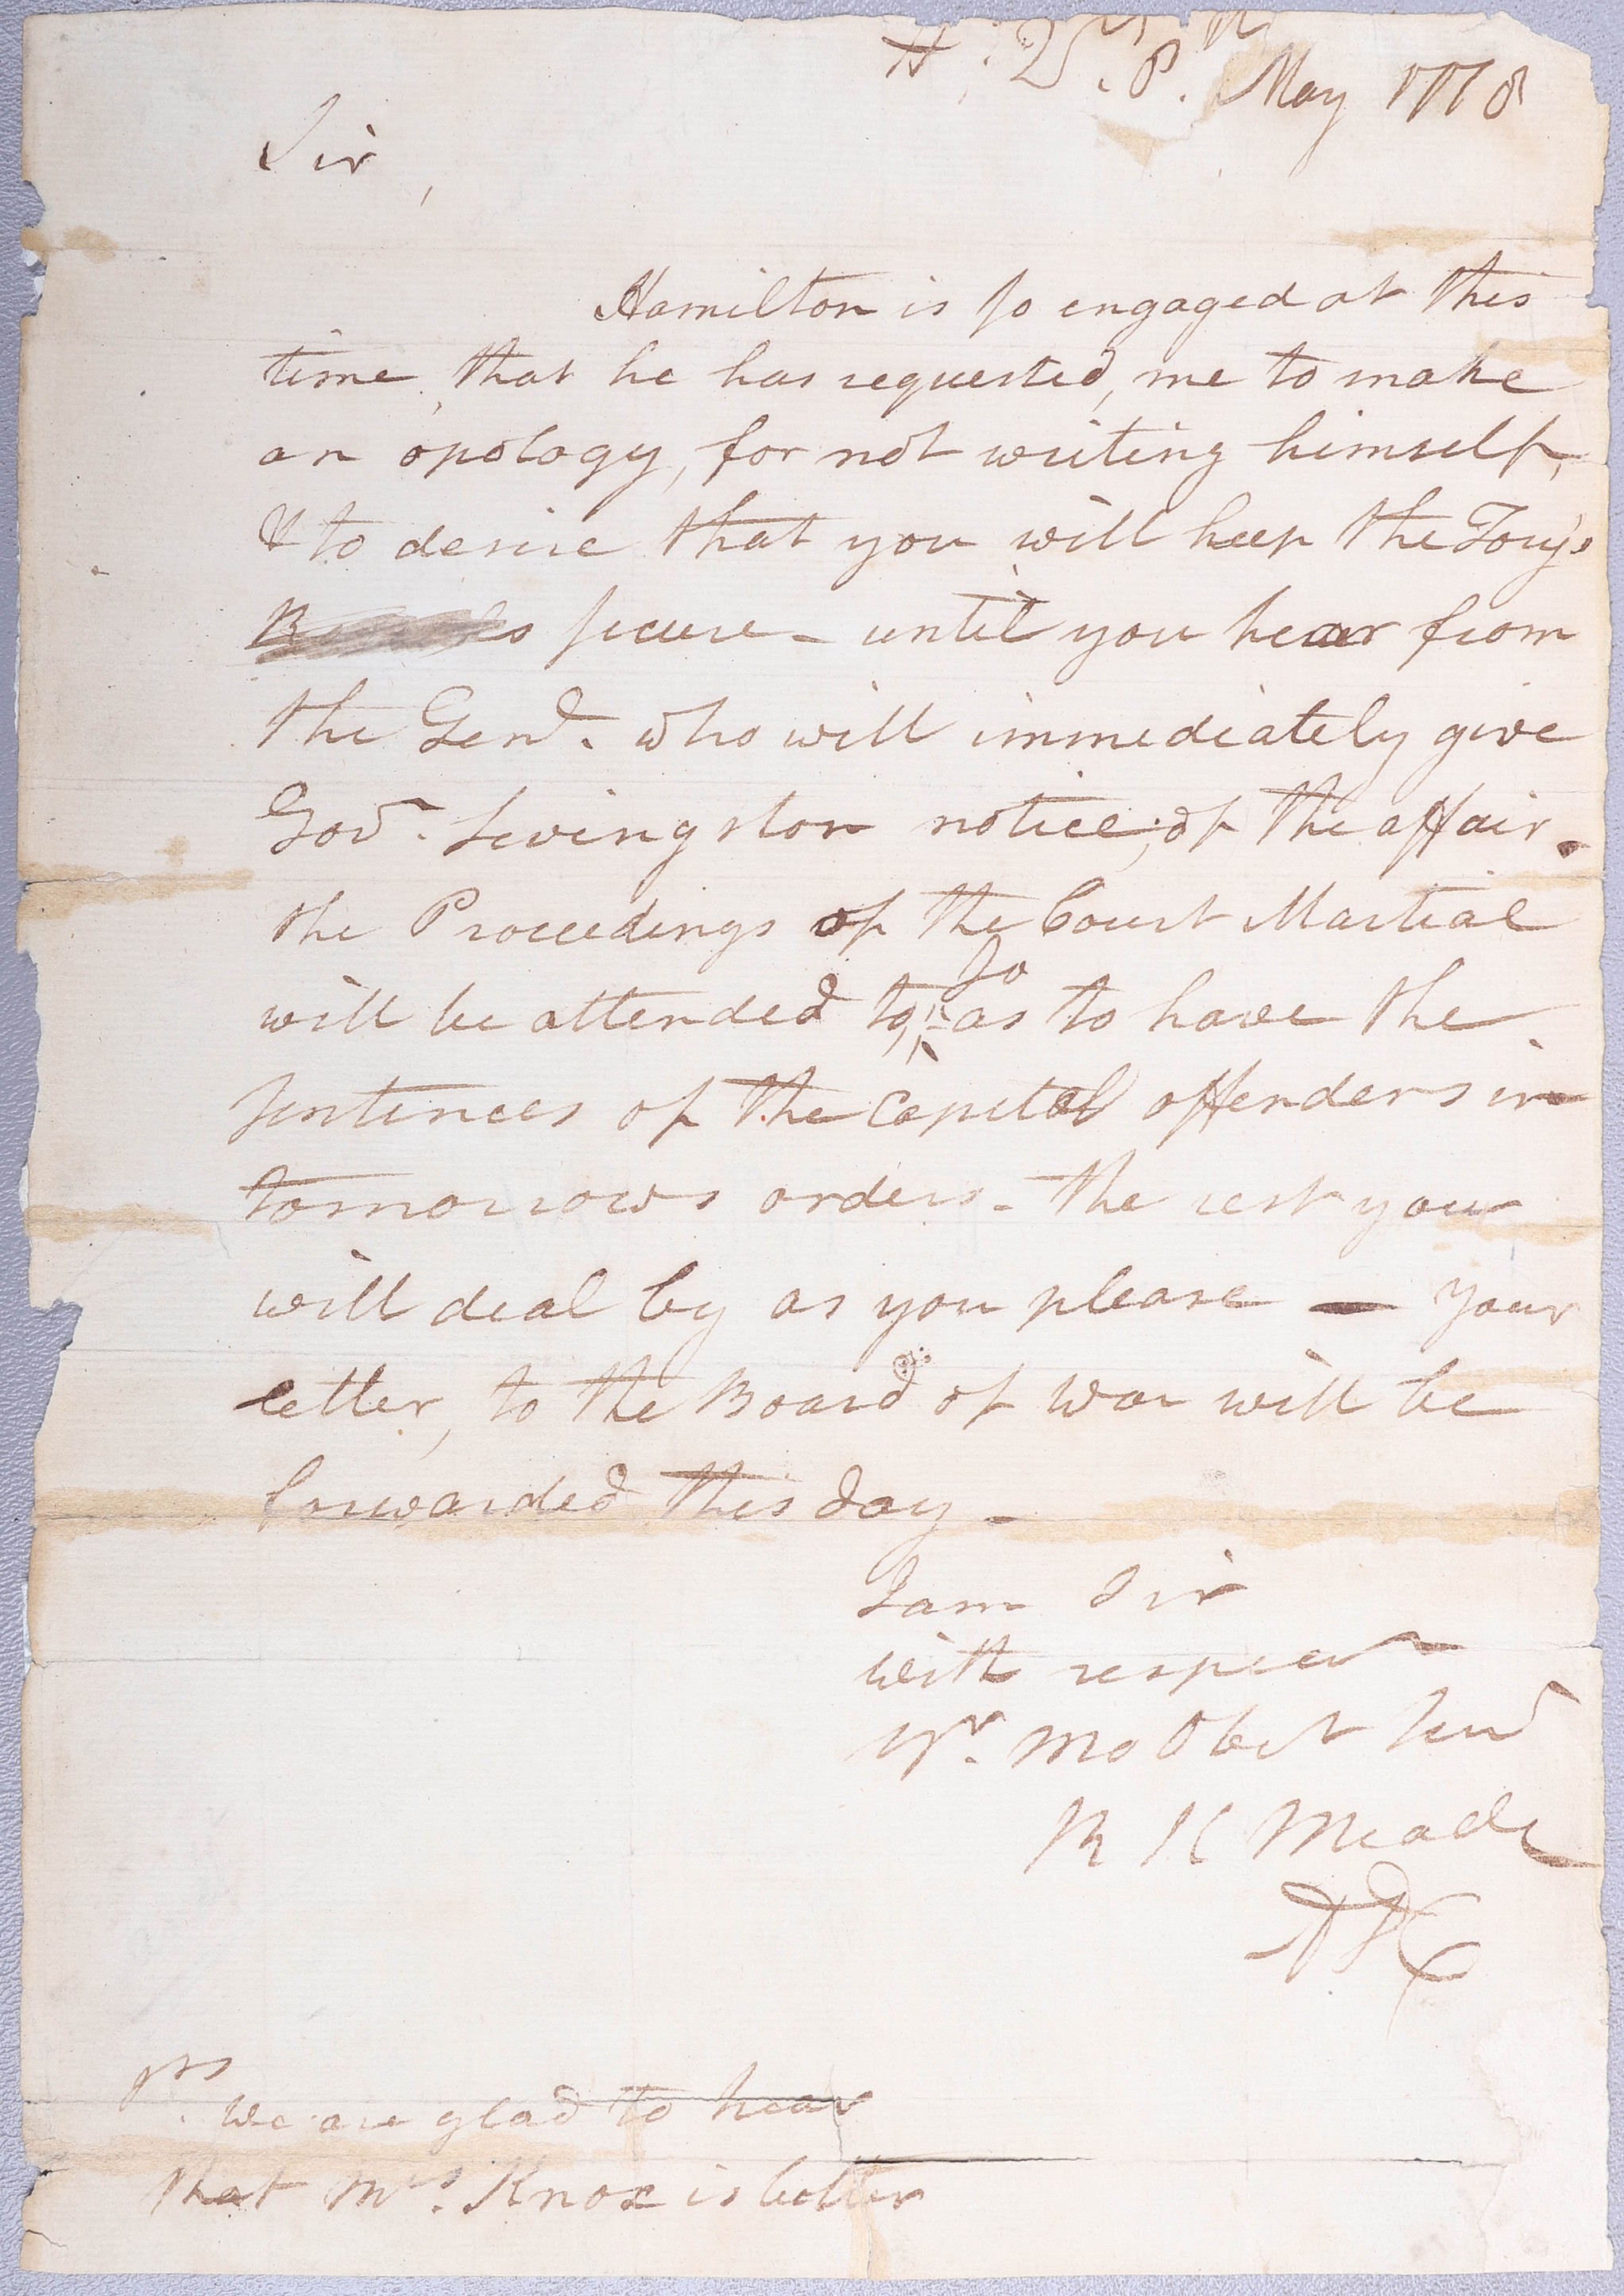 H: Qrs. May 1778
Sir,
Hamilton is so engaged at this
time, that he has requested, me to make
an apology, for not writing himself,
& to desire that you will keep the Tory's
secure - until you hear from
the Genl. who will immediately give
Govr. Livingston notice, of the affair.
the Proceedings of the Court Martial
will be attended to, so as to have the
sentences of the Capital offenders in
tomorrows orders - the rest you
will deal by as you please — your
letter, to the Board of War will be
forwarded this day -
I am Sir
with respect
Yr. Mo Obet Serv
R K Meade
ADC
Ps. We are glad to hear
that Mrs. Knox is better